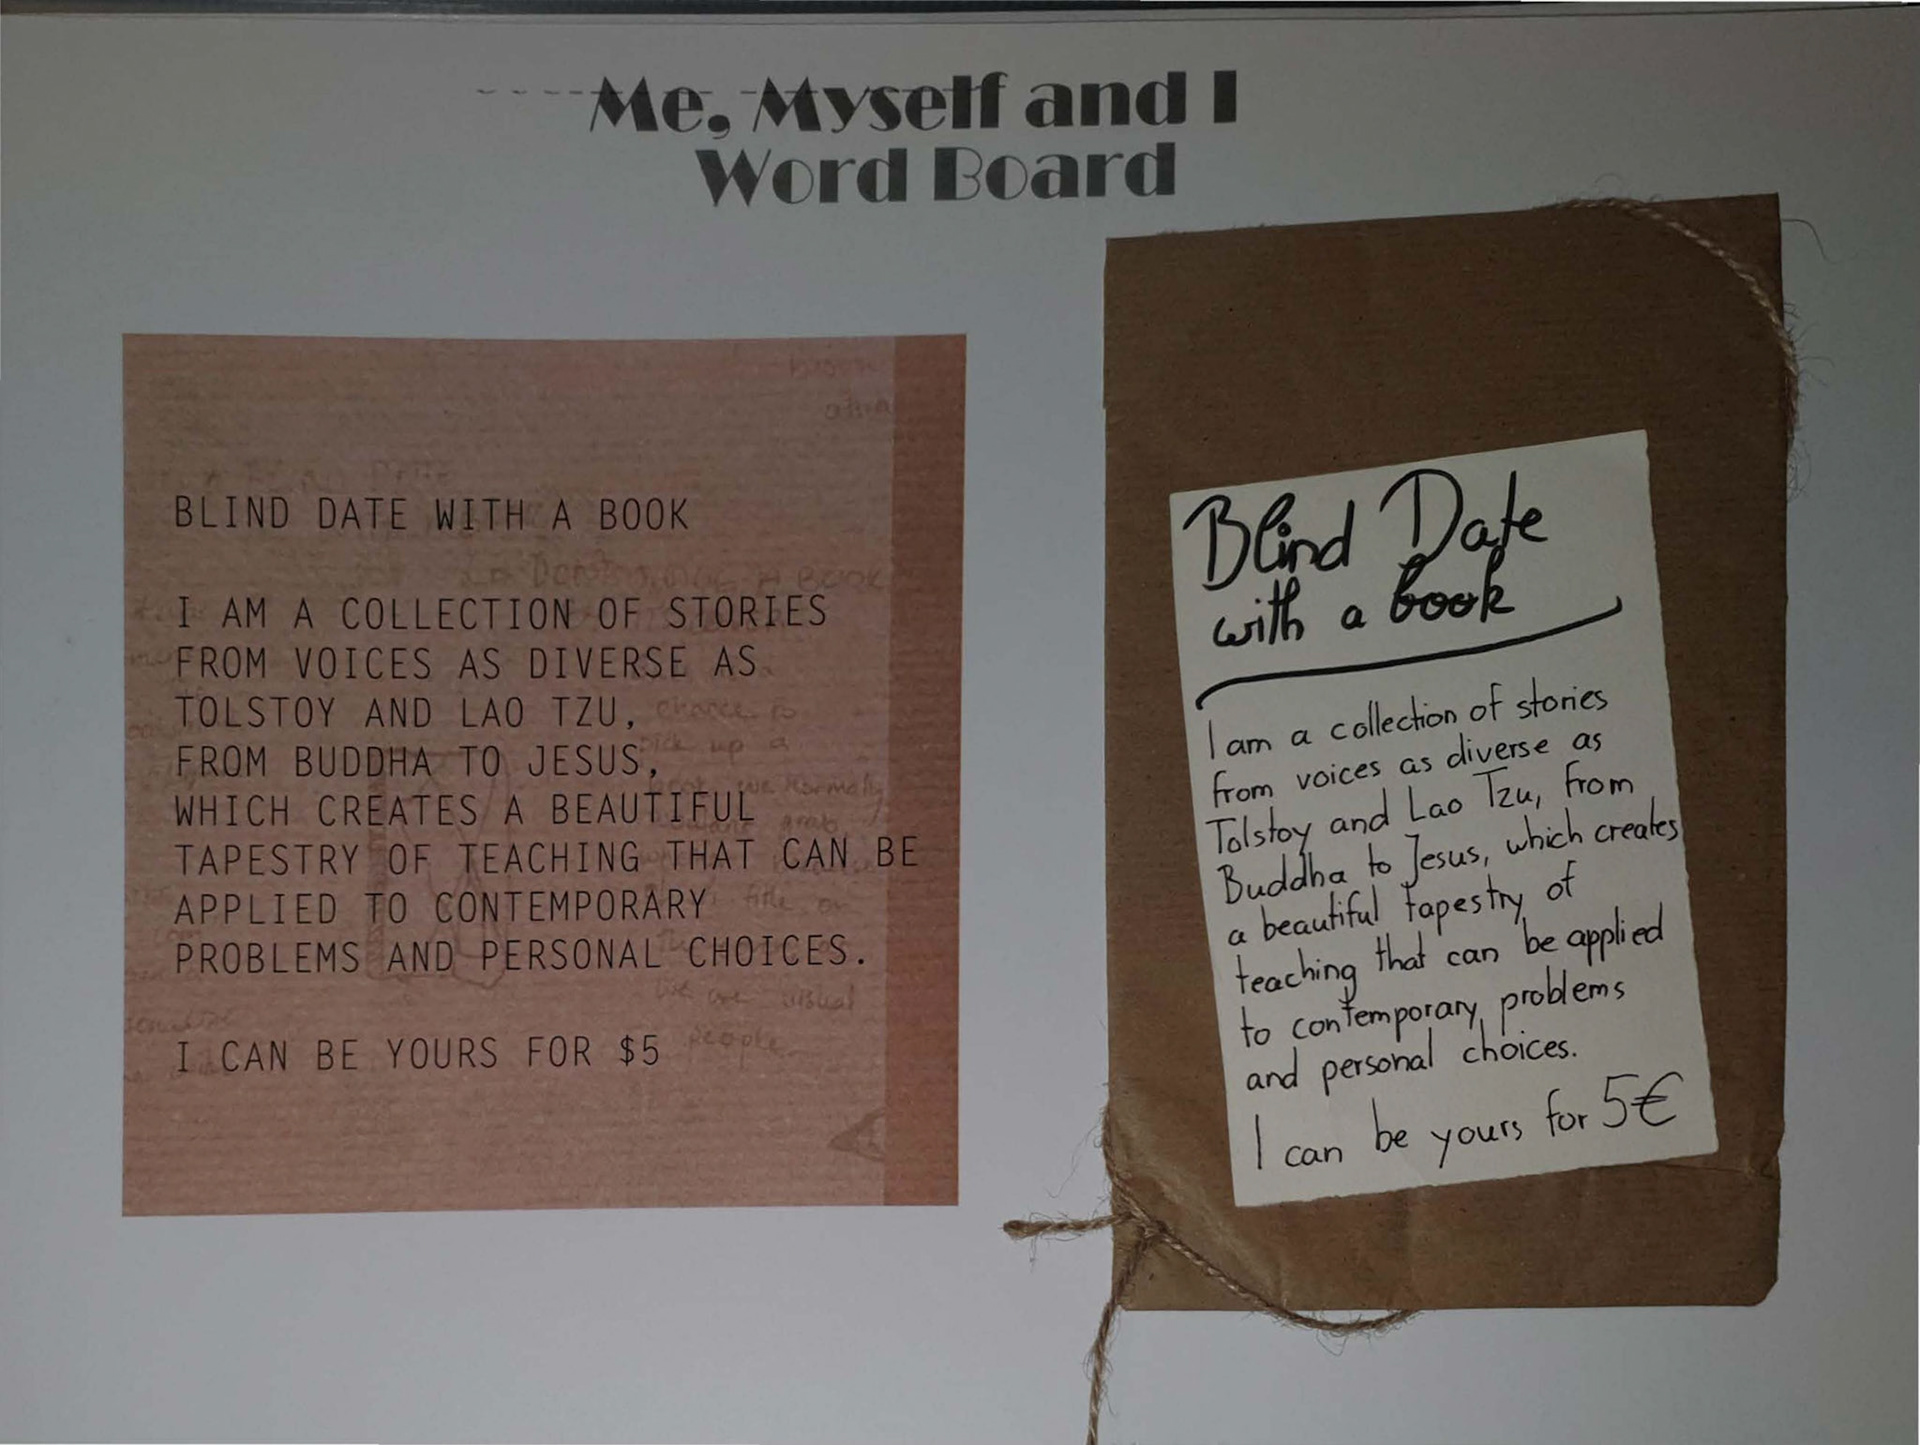 Me, Myself and I
Word Board
BLIND DATE WITH A BOOK
I AM A COLLECTION OF STORIES
FROM VOICES AS DIVERSE AS
TOLSTOY AND LAO TZU,
FROM BUDDHA TO JESUS,
WHICH CREATES A BEAUTIFUL
TAPESTRY OF TEACHING THAT CAN BE
APPLIED TO CONTEMPORARY
PROBLEMS AND PERSONAL CHOICES.
I CAN BE YOURS FOR $5
chance to
pick up a
we normally
title, or
we are visual
people
Blind Date
with a book
I am a collection of stories
from voices as diverse as
Tolstoy and Lao Tzu, from
Buddha to Jesus, which creates
a beautiful tapestry of
teaching that can be applied
to contemporary problems
and personal choices.
I can be yours for 5€